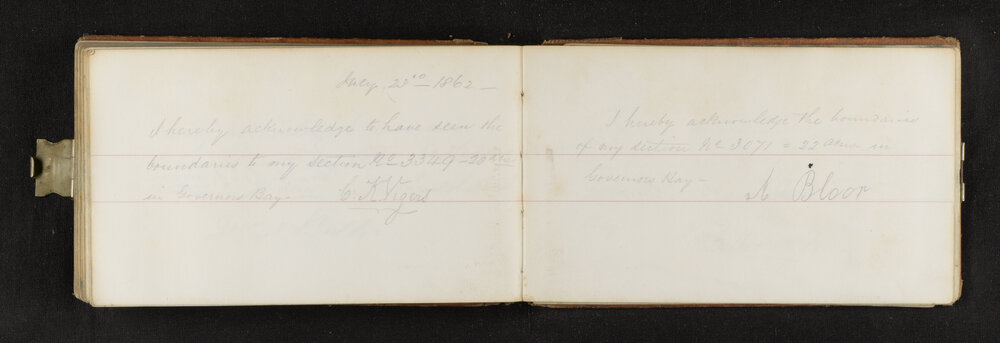 July 23rd 1862 –
I hereby acknowledge to have seen the
boundaries to my section No 3349 – 20 acres
in Governors Bay –
C. K. Vigers
I hereby acknowledge the boundaries
of my section No 3071 = 22 acres in
Governors Bay –
A Bloor